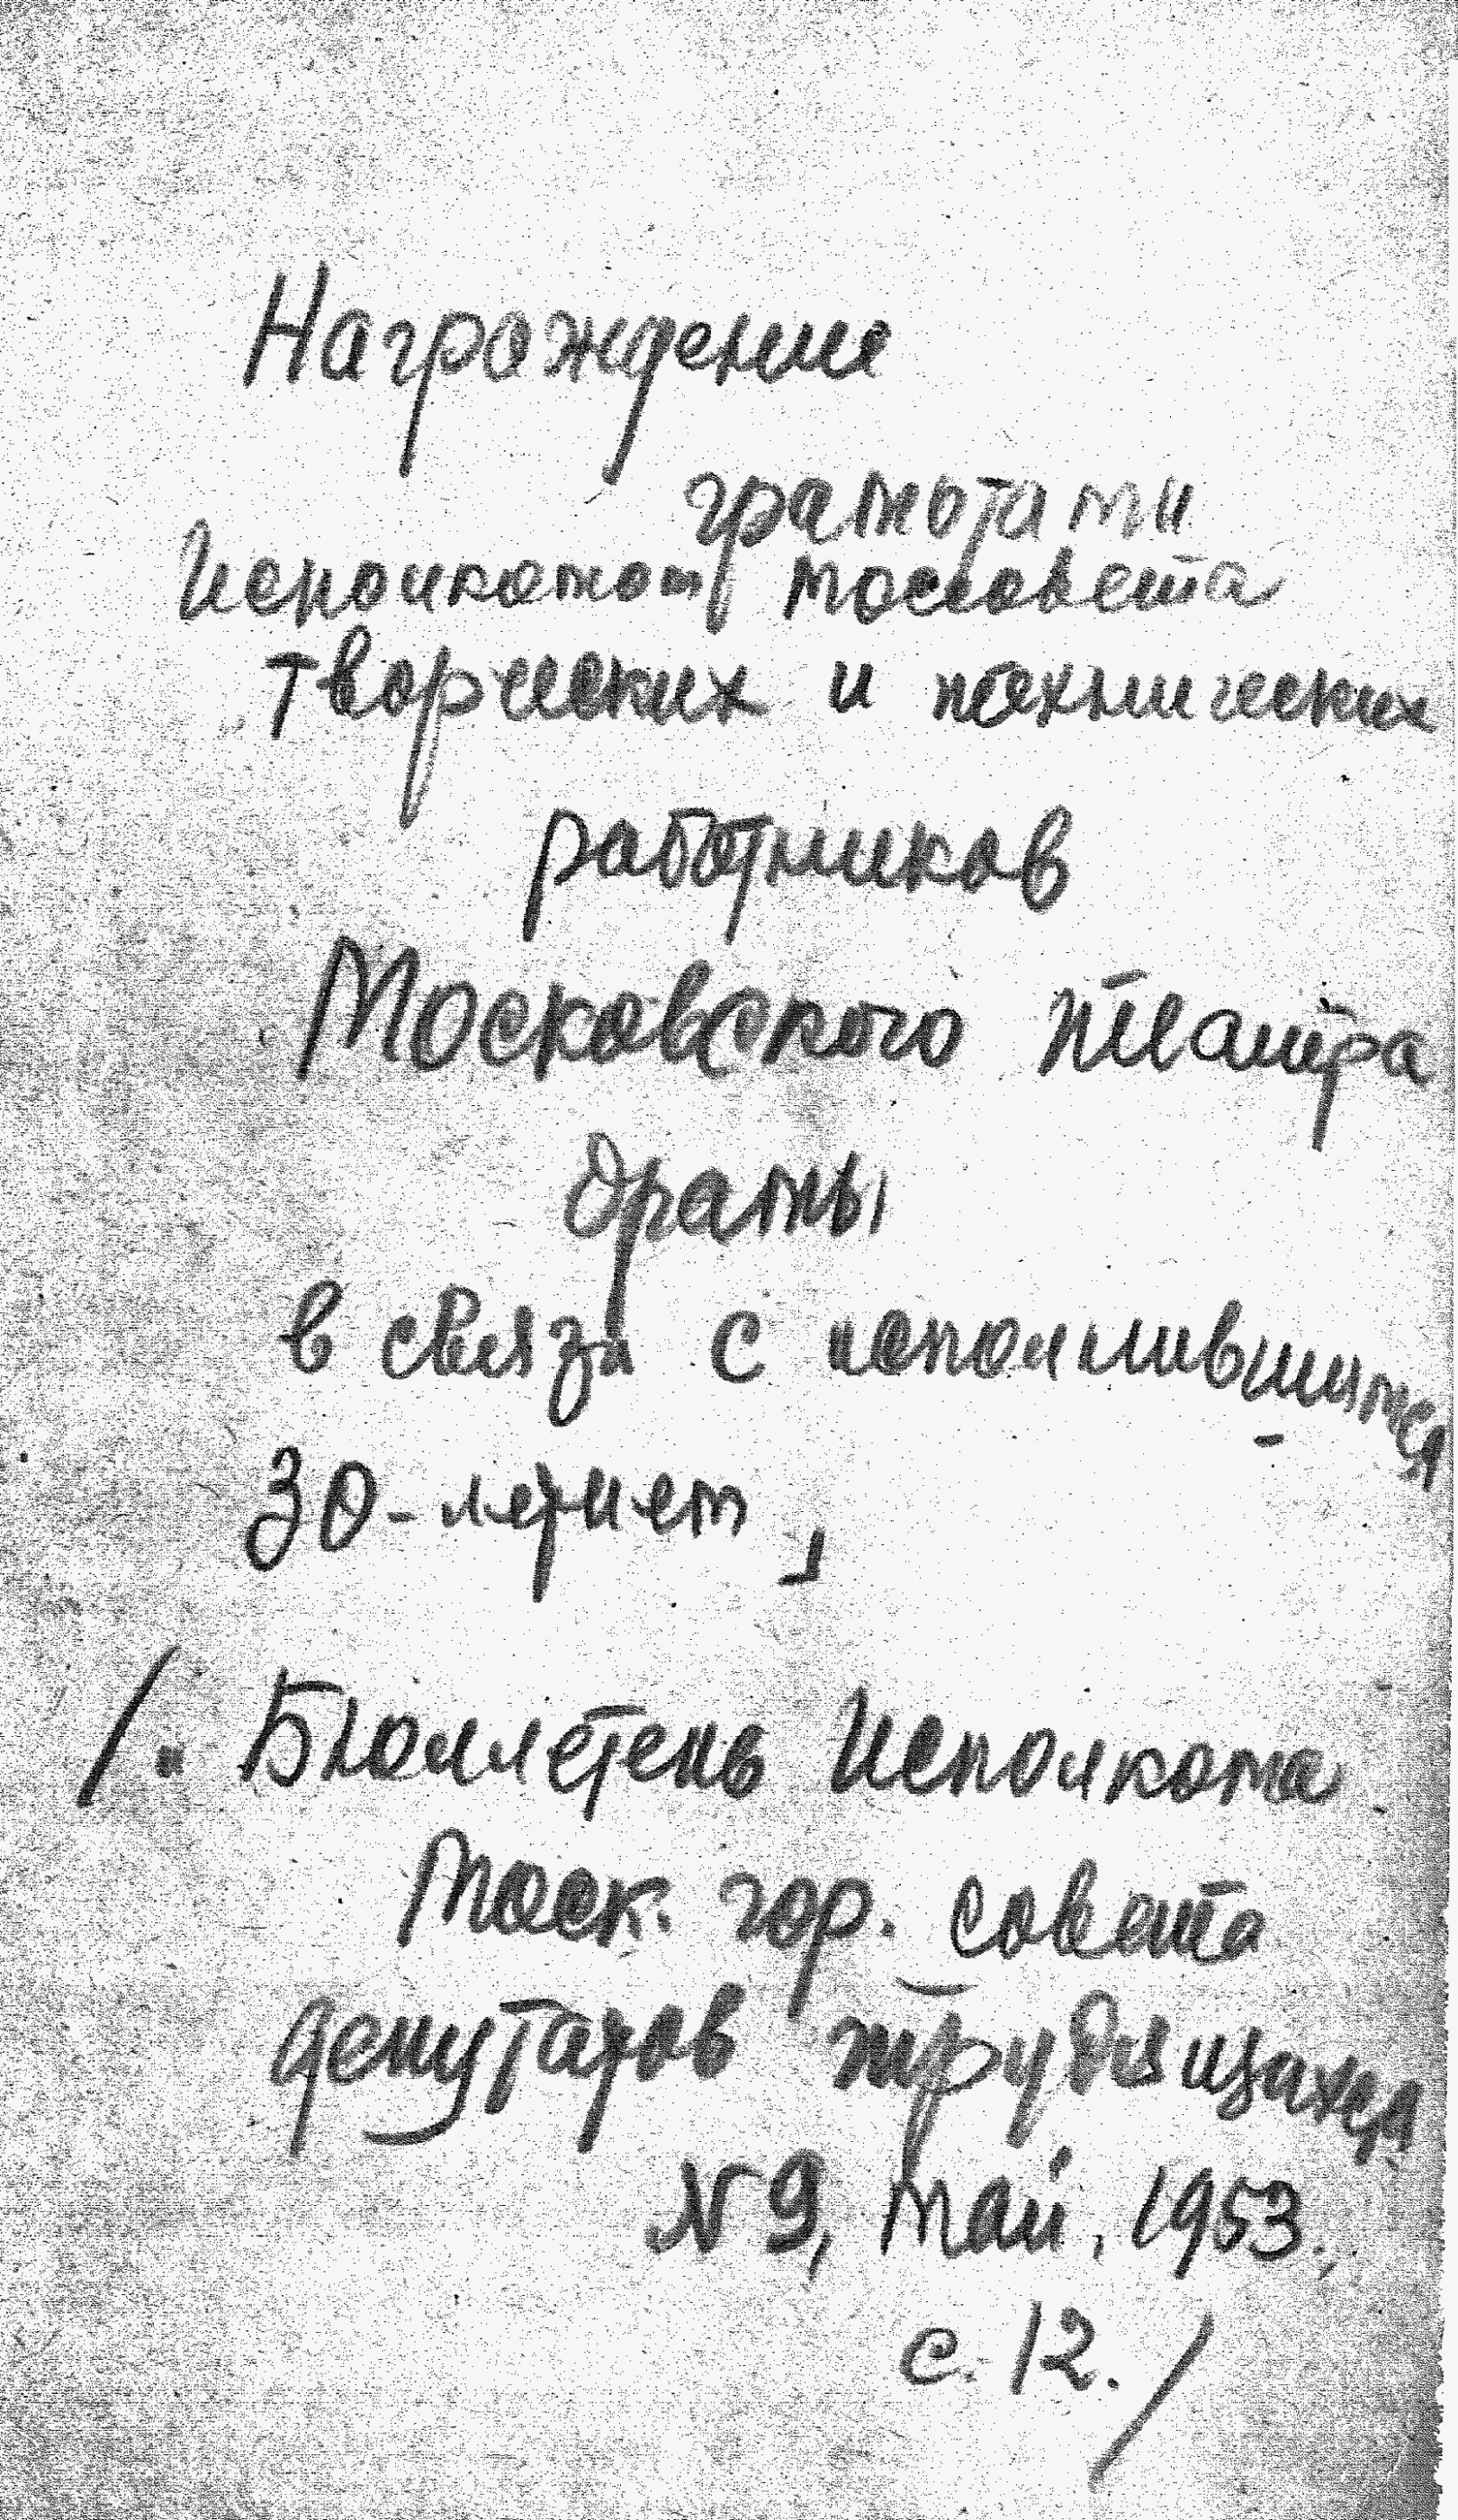 Награждения
грамотами
Исполкомом Моссовета
творческих и технических
работников
Московского театра
драмы
в связи с исполнившимся
30-летием,
/. Бюллетень Исполкома
Моск. гор. совета
депутатов трудящихся
N 9, май, 1953.,
с. 12./